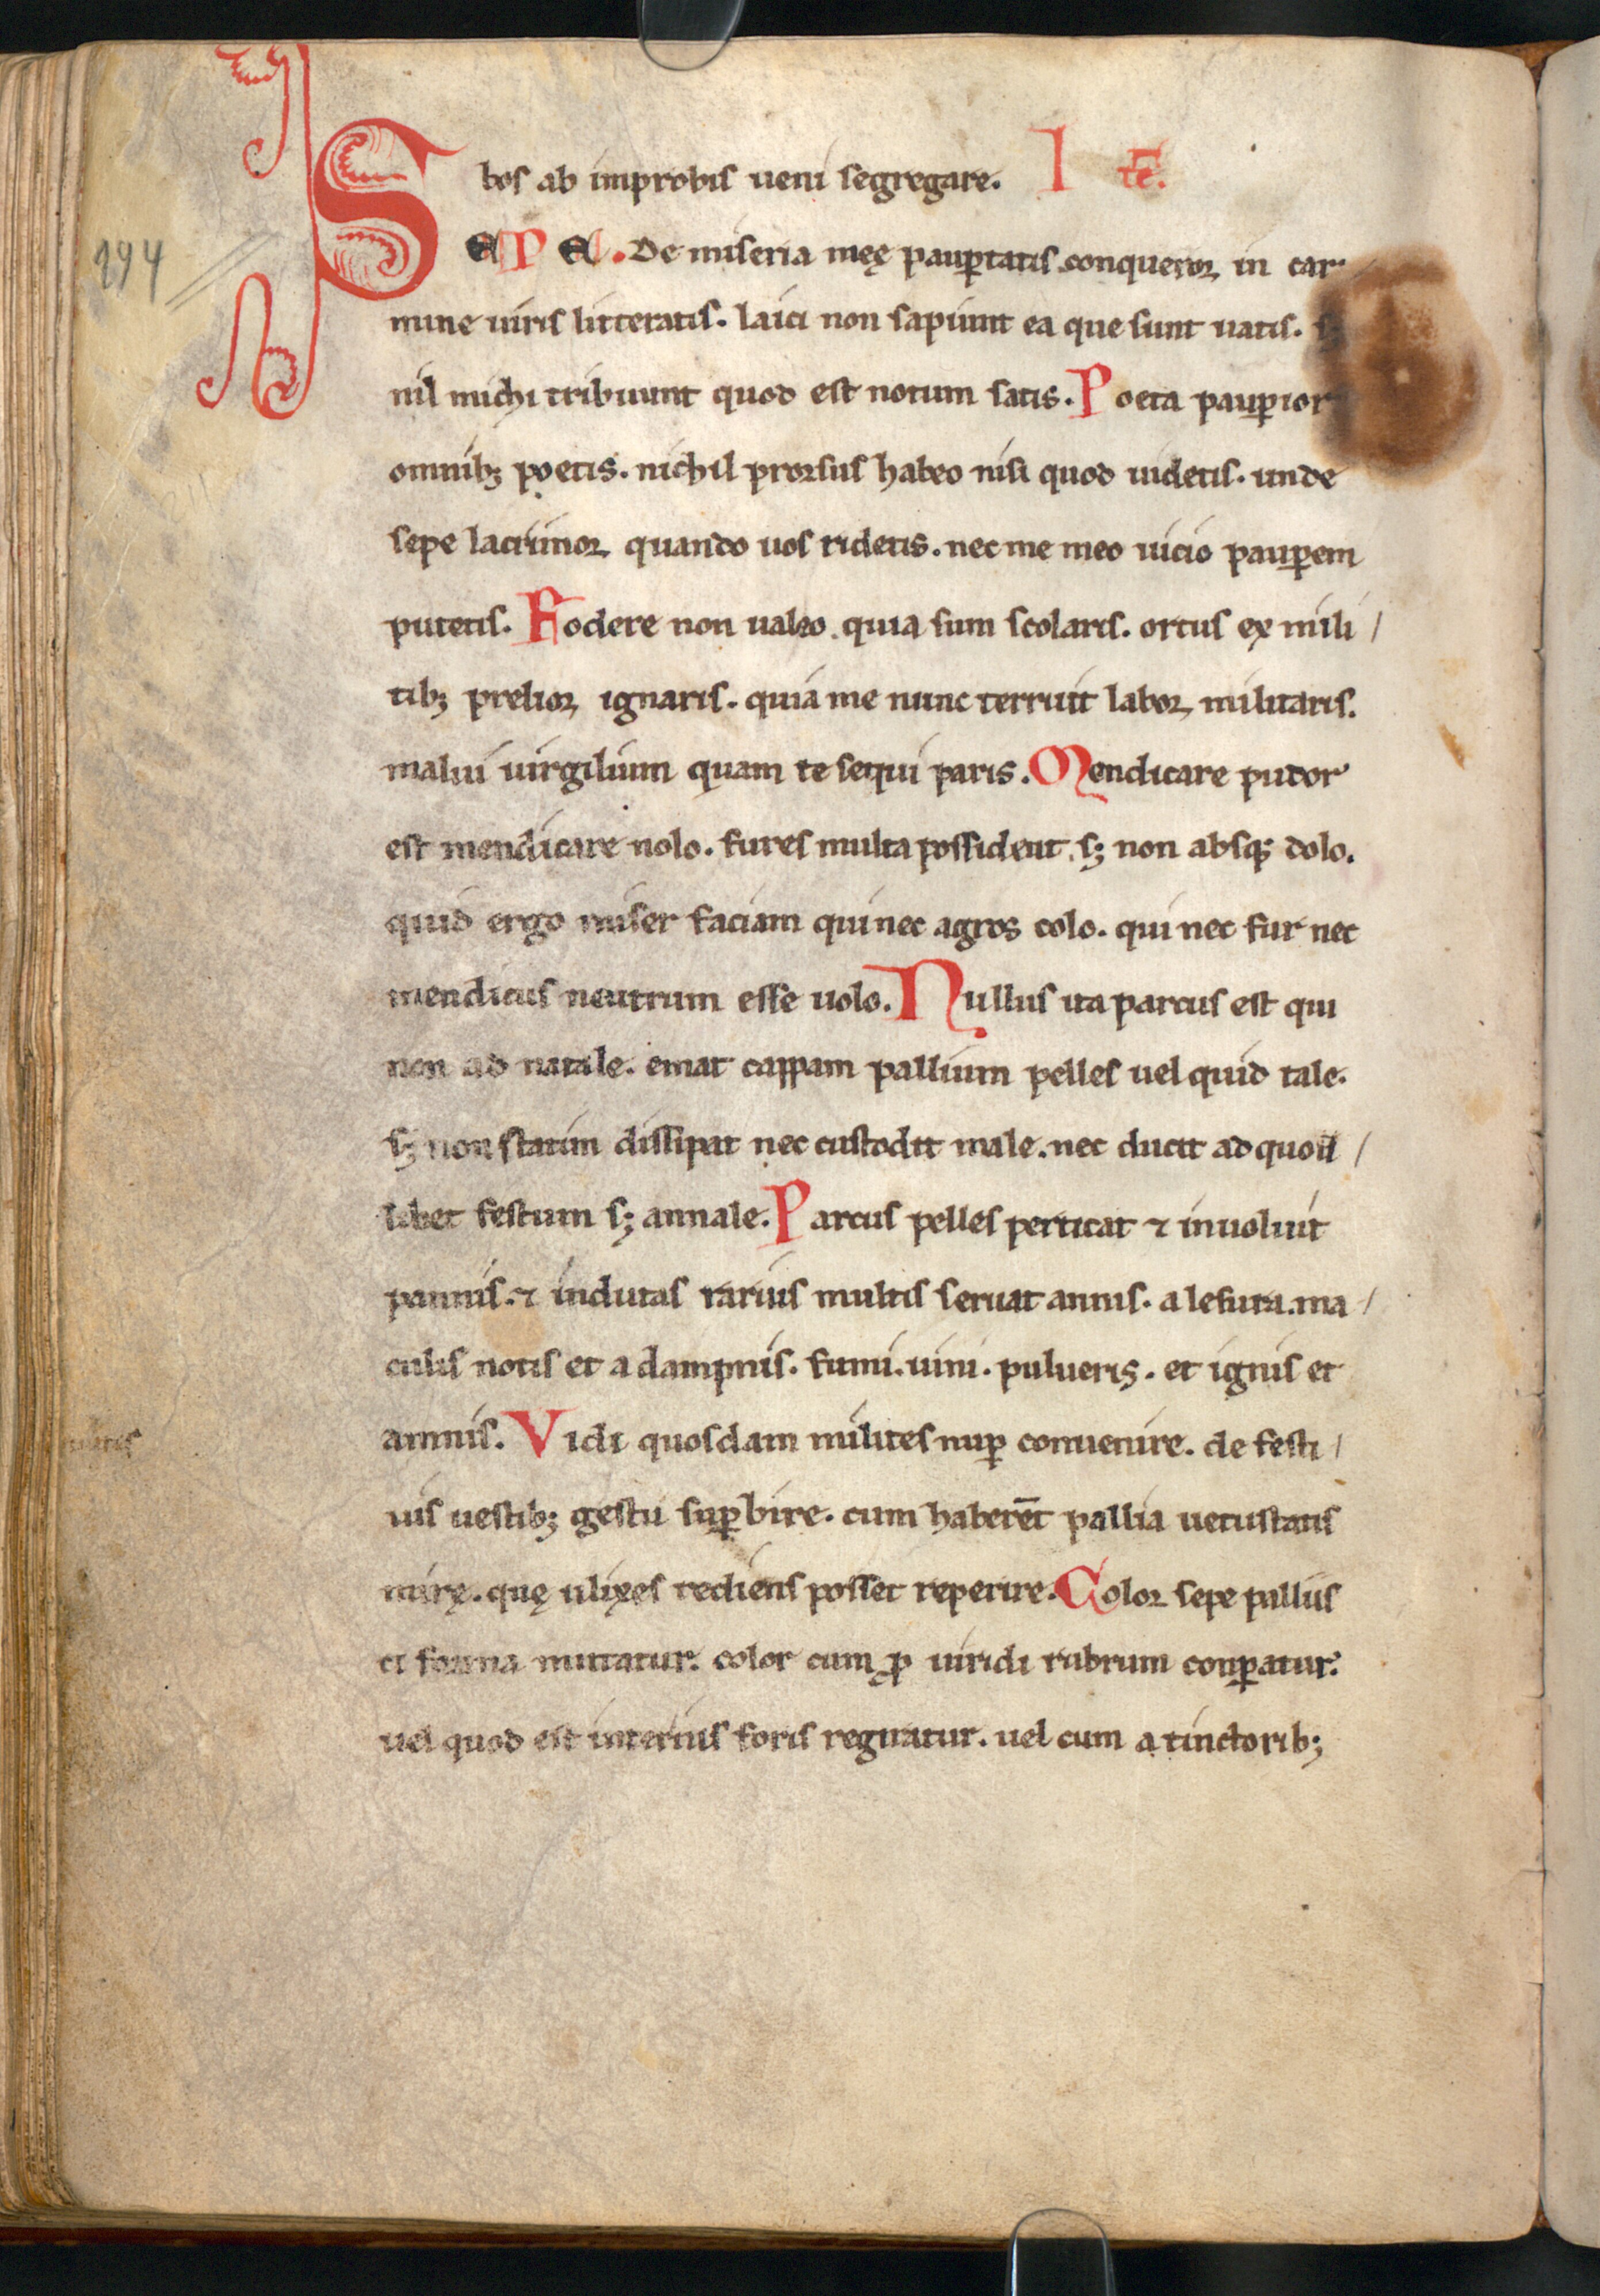 bos ab improbis ueni segregare. I tē.
194
SEPE. De miseria meę paup̲tatis conqueror in car
mine uiris litteratis. laici non sapiunt ea que sunt uatis. sꝫ
nil michi tribuunt quod est notum satis. Poeta paup̲ior
omnibꝫ poetis. nichil prorsus habeo nisi quod uidetis. unde
sepe lacrimor quando uos ridetis. nec me meo uicio paup̲em
putetis. Fodere non ualeo quia sum scolaris. ortus ex mili /
tibꝫ prelior ignaris. quia me nunc terruit labor militaris.
malui uirgilium quam te sequi paris. Mendicare pudor
est mendicare nolo. fures multa possident sꝫ non absqꝫ dolo.
quid ergo miser faciam qui nec agros colo. qui nec fur nec
mendicus neutrum esse uolo. Nullus ita parcus est qui
non ad natale. emat cappam pallium pelles uel quid tale.
sꝫ non statim dissipat nec custodit male. nec ducit ad quod /
libet festum sꝫ annale. Parcus pelles perticat ⁊ inuoluit
pannis. ⁊ indutas rarius multis seruat annis. a lesura. ma /
culis notis et a dampnis. fumi. uini. pulueris. et ignis et
amnis. Vidi quosdam milites nup̲ conuenire. de festi /
uis uestibꝫ gestu sup̲bire. cum haberēt pallia uetustatis
mirę. quę ulixes rediens posset reperire. Color sepe palliis
et forma mutatur. color cum ꝓ uiridi rubrum comp̲atur.
uel quod est interius foris regiratur. uel cum a tinctoribꝫ